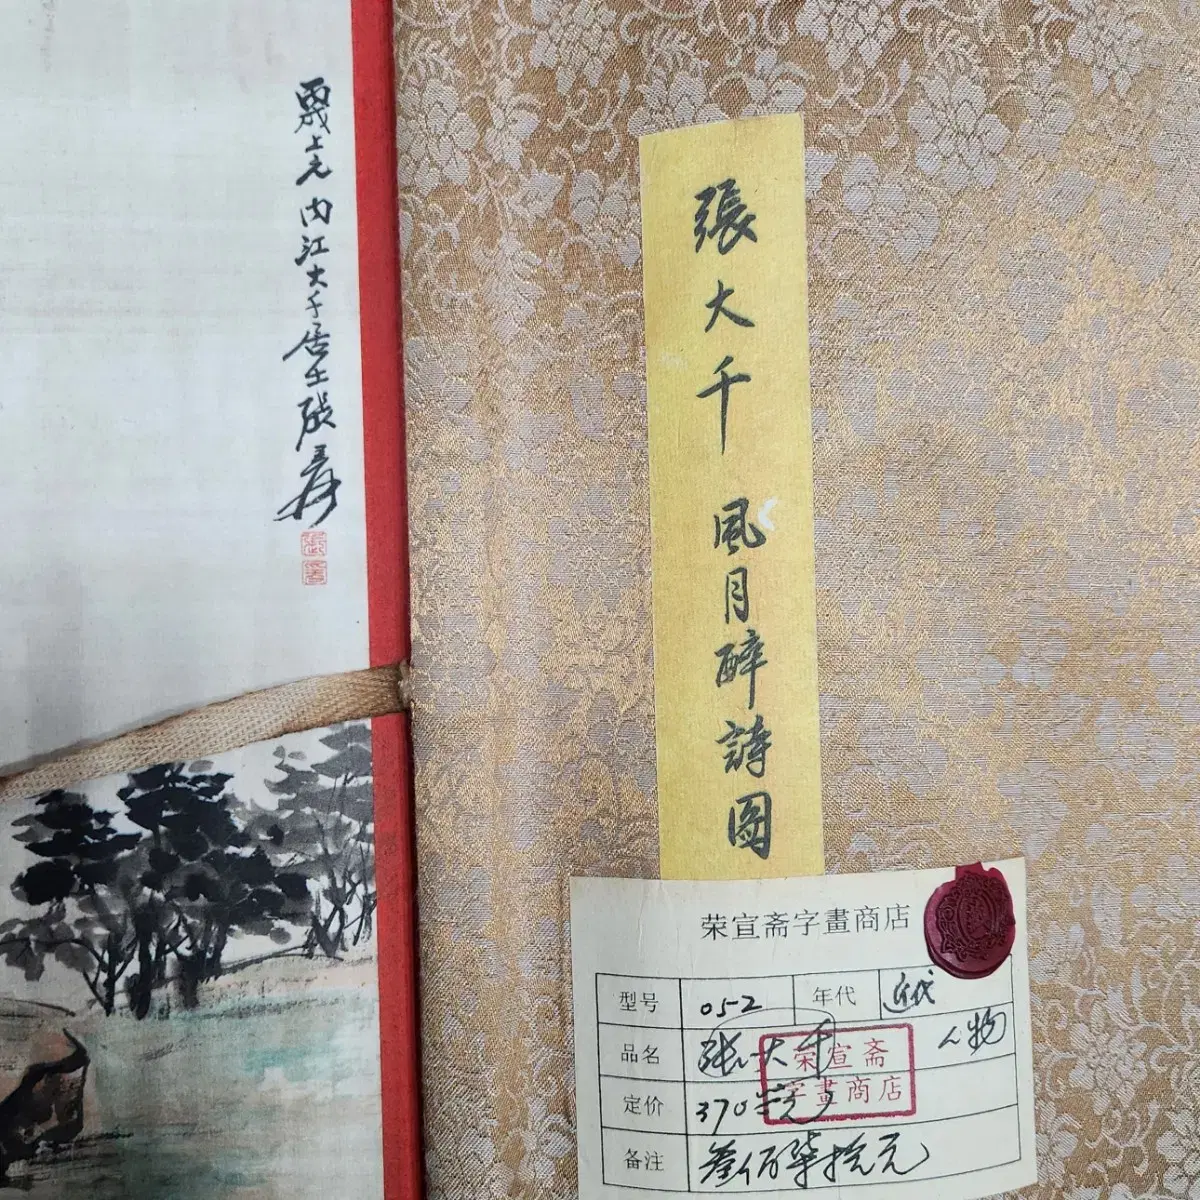 上元内江大千居士張爰
張大千 風月醉詩圖
荣宣斋字畫商店
型号 052 年代 近代
品名 张大千 人物
定价 370
备注 叁佰柒拾元
荣宣斋
字畫商店